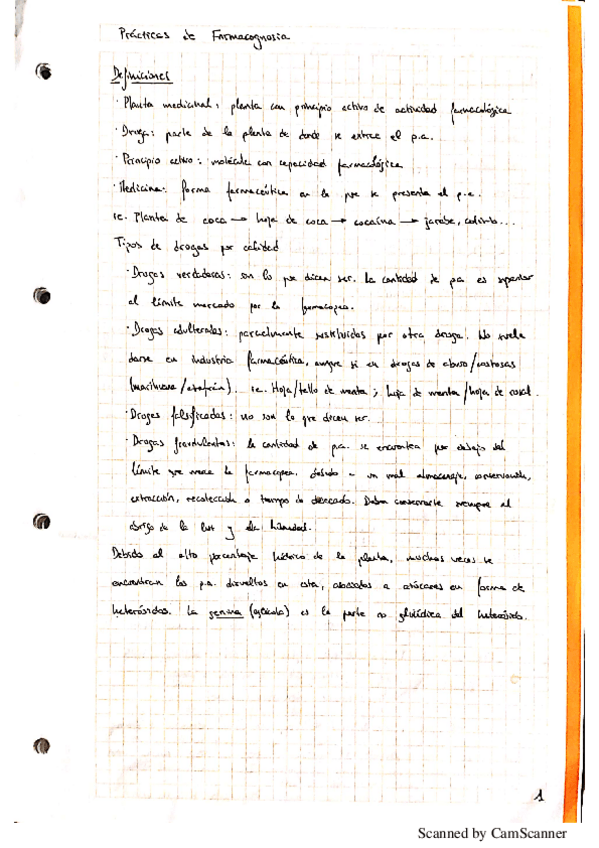 Prácticas de Farmacognosia
Definiciones
· Planta medicinal: planta con principio activo de actividad farmacológica
· Droga: parte de la planta de donde se extrae el p.a.
· Principio activo: molécula con capacidad farmacológica
· Medicina: forma farmacéutica en la que se presenta el p.a.
ie. Planta de coca → hoja de coca → cocaína → jarabe, colirio...
Tipos de drogas por calidad
· Drogas verdaderas: son lo que dicen ser. La cantidad de p.a. es superior
al límite marcado por la farmacopea.
· Drogas adulteradas: parcialmente sustituidas por otra droga. No suele
darse en industria farmacéutica, aunque sí en drogas de abuso/costosas
(marihuana/azafrán). ie. Hoja/tallo de menta; hoja de menta/hoja de rosal.
· Drogas falsificadas: no son lo que dicen ser.
· Drogas fraudulentas: la cantidad de p.a. se encuentra por debajo del
límite que marca la farmacopea, debido a un mal almacenaje, conservación,
extracción, recolección o tiempo de desecado. Deben conservarse siempre al
abrigo de la luz y la humedad.
Debido al alto porcentaje hídrico de la planta, muchas veces se
encuentran los p.a. disueltos en esta, asociados a azúcares en forma de
heterósidos. La genina (aglicola) es la parte no glucídica del heterósido.
1
Scanned by CamScanner